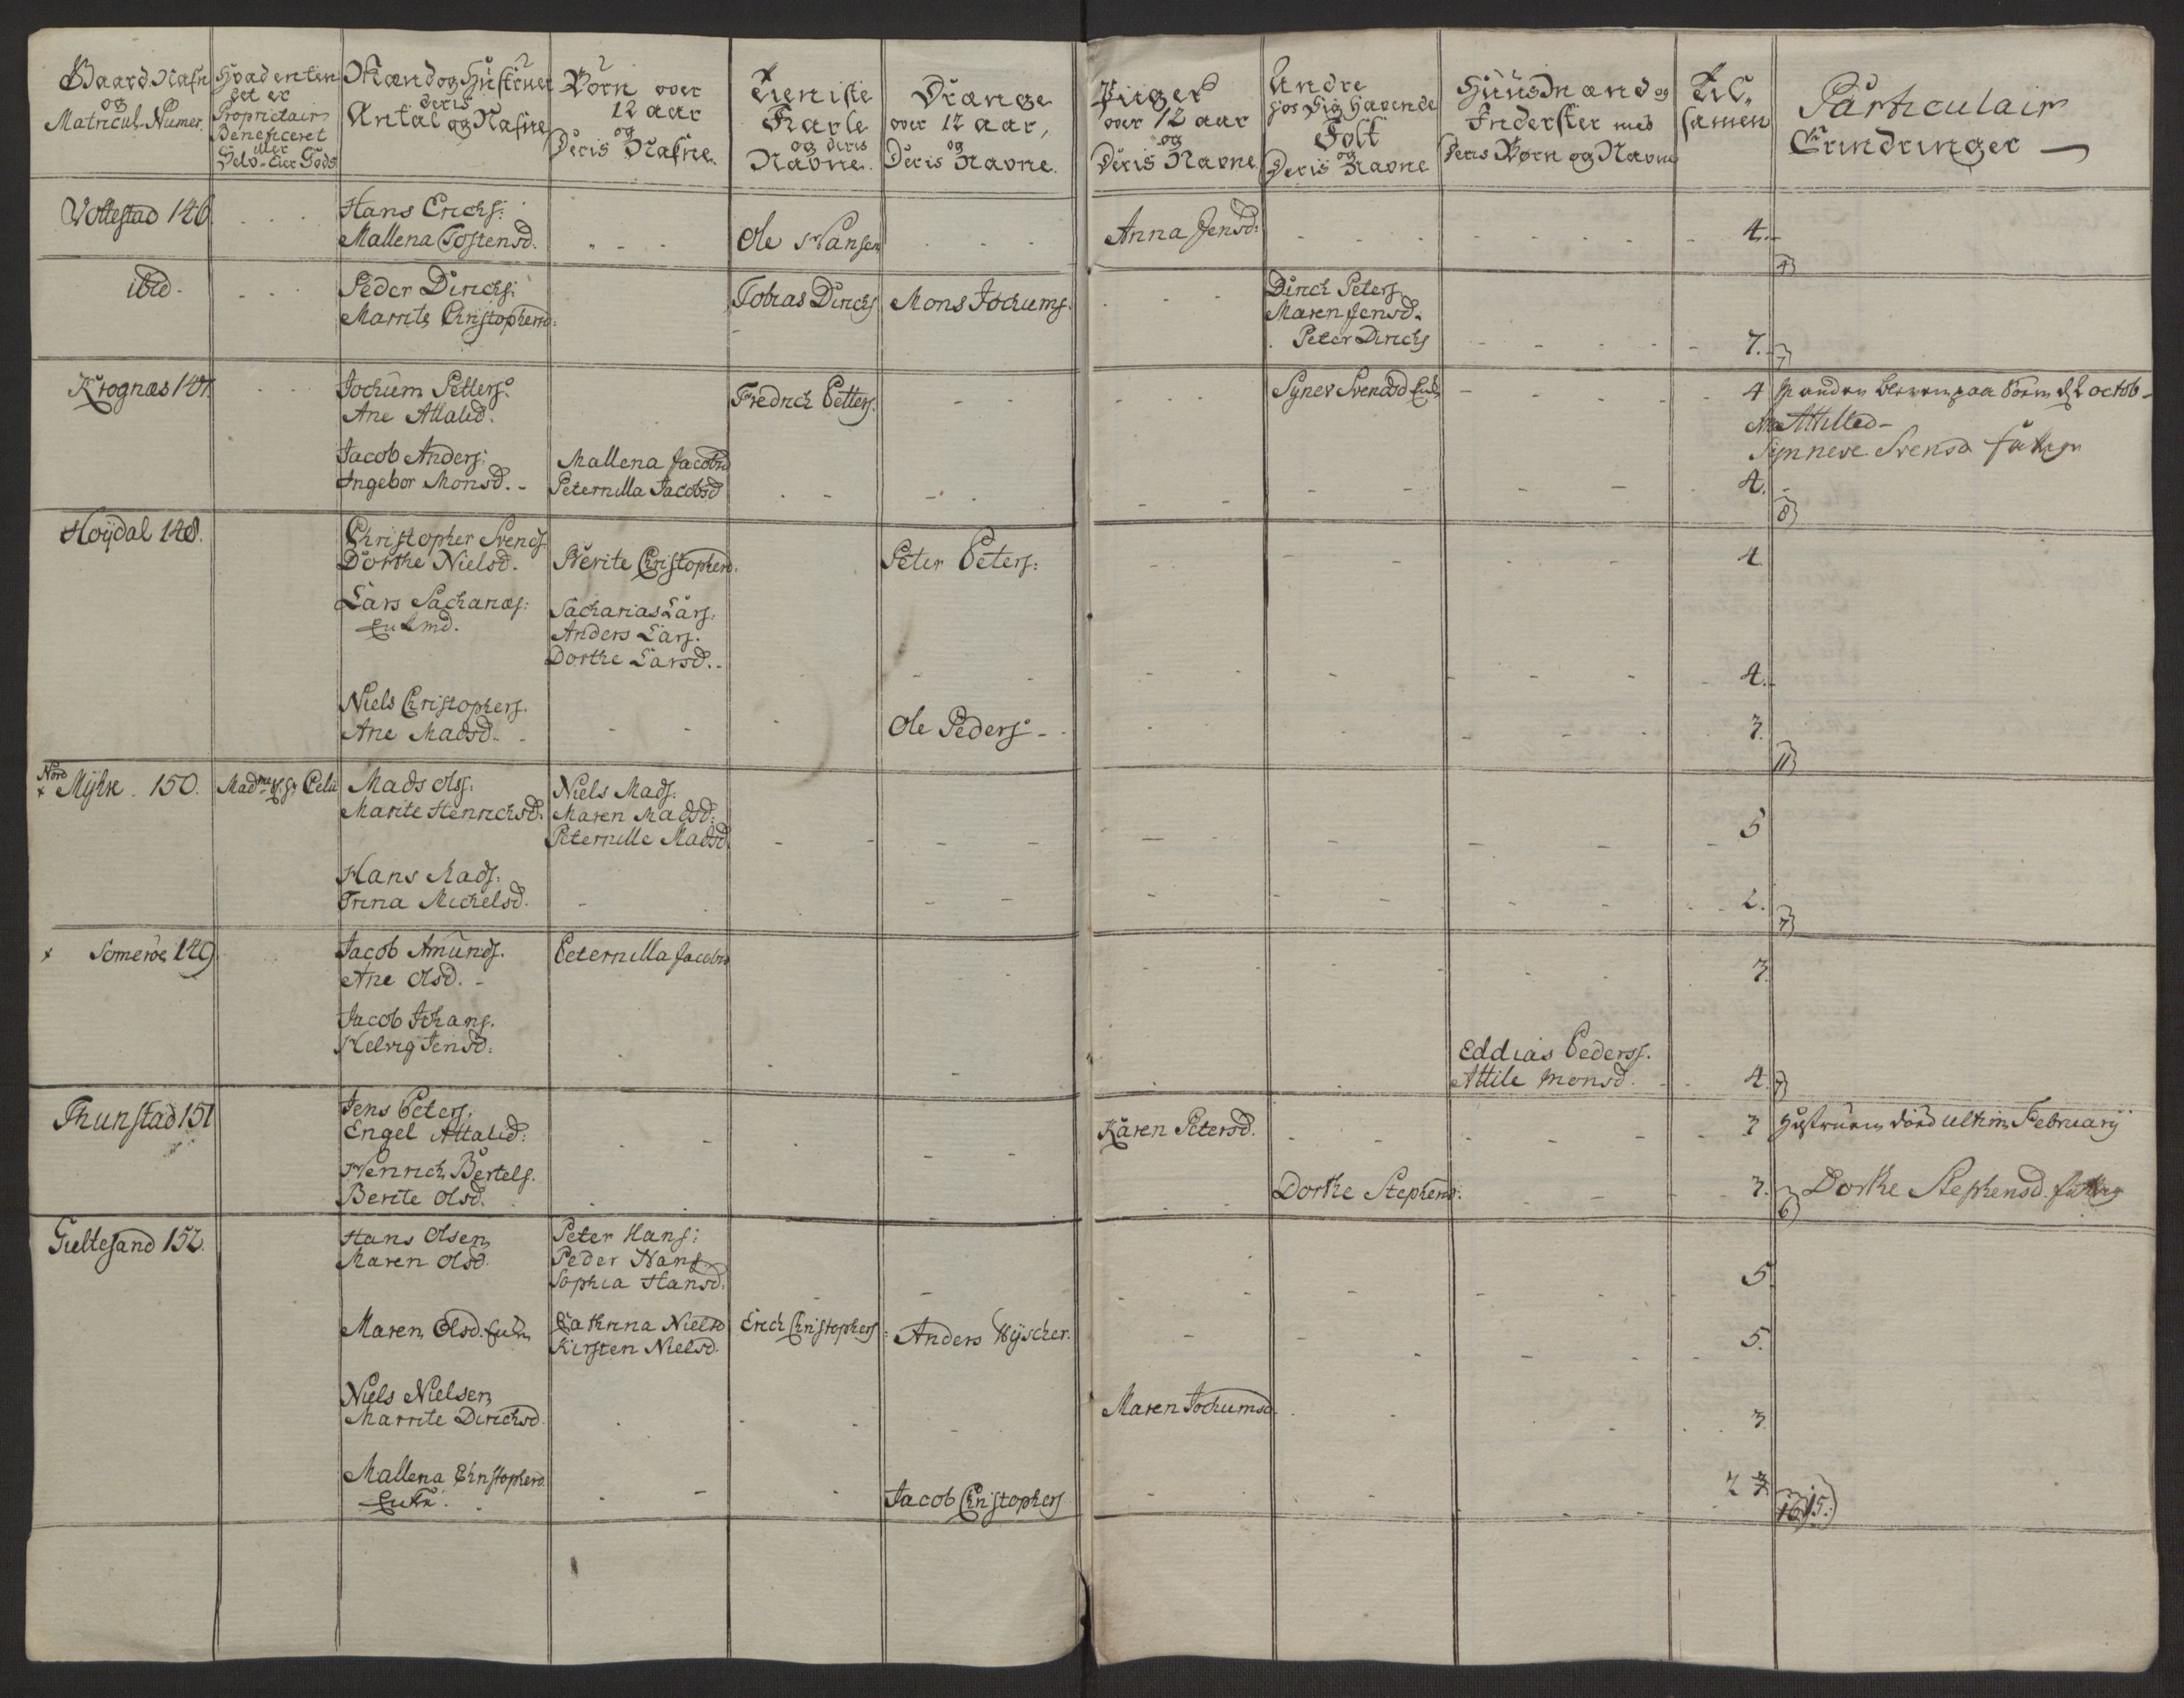 Gaard Nafn
og
Matricul-Numer.
Hvad enten
det er
Proprietair
Beneficeret
eller
Selv-Eier Gods
Mænd og Hustruer
deris
Antal og Nafne
Børn over
12 aar
og
Deris Nafne.
Tieniste
Karle
og deris
Navne.
Drænge
over 12 aar,
og
Deris Navne.
Piiger
over 12 aar
og
Deris Navne.
Andre
hos sig havende
Folk
og
Deris Navne
Huusmænd og
Inderster med
Deris Børn og Navne
Til-
samen
Particulair
Erindringer
Vollestad 146
Hans Erichs:
Mallena Tostensd.
Ole Hansen
Anna Jensd:
4.
4
ibid.
Peder Dirichs:
Marrite Christophersd:
Tobias Dirichs
Mons Jochums.
Dirch Peters
Maren Jensd.
Peter Dirichs
7.
7
Krognæs 147.
Jochum Petters:
Ane Attalid.
Fredrich Petters.
Synev Svendsd Enk
4
octob
Attilled
Synneve Svensd
Jacob Anders:
Ingebor Monsd.
Mallena Jacobsd
Peternilla Jacobsd
4.
8
Høÿdal 148.
Christopher Svends
Dorthe Nielsd.
Berite Christophersd.
Peter Peters:
4
Lars Sacharias:
Enkmd.
Sacharias Lars:
Anders Lars.
Dorthe Larsd.
4.
Niels Christophers.
Ane Madsd.
Ole Peders
3.
11
Nord
x Mÿhre 150.
Madme
Mads Ols:
Marite Henrichsd.
Niels Mads:
Maren Madsd:
Peternille Madsd
5
Hans Mads:
Trina Michelsd.
2.
7
x Somerøe 149
Jacob Amunds.
Ane Olsd.
Peternilla Jacobsd
3.
Jacob Johans.
Helvig Jensd:
Eddias Peders.
Attile Monsd.
4
7
Thunstad 151
Jens Peters.
Engel Attalid:
Karen Petersd.
3
Hustruen død ultim Februarij
Henrich Bertels.
Berite Olsd.
Dorthe Stephensd.
3.
6
Dorthe Stephensd.
Tieltesand 152.
Hans Olsen
Maren Olsd.
Peter Hans:
Peder Hans
Sophia Hansd:
5.
Maren Olsd. Enke
Cathrina Nielsd
Kirsten Nielsd.
Erich Christophers:
Anders Wÿscher.
5.
Niels Nielsen
Marrite Dirichsd.
Maren Jochumsd.
3
Mallena Christophersd.
Enke.
Jacob Christophers
2 3
16 15: